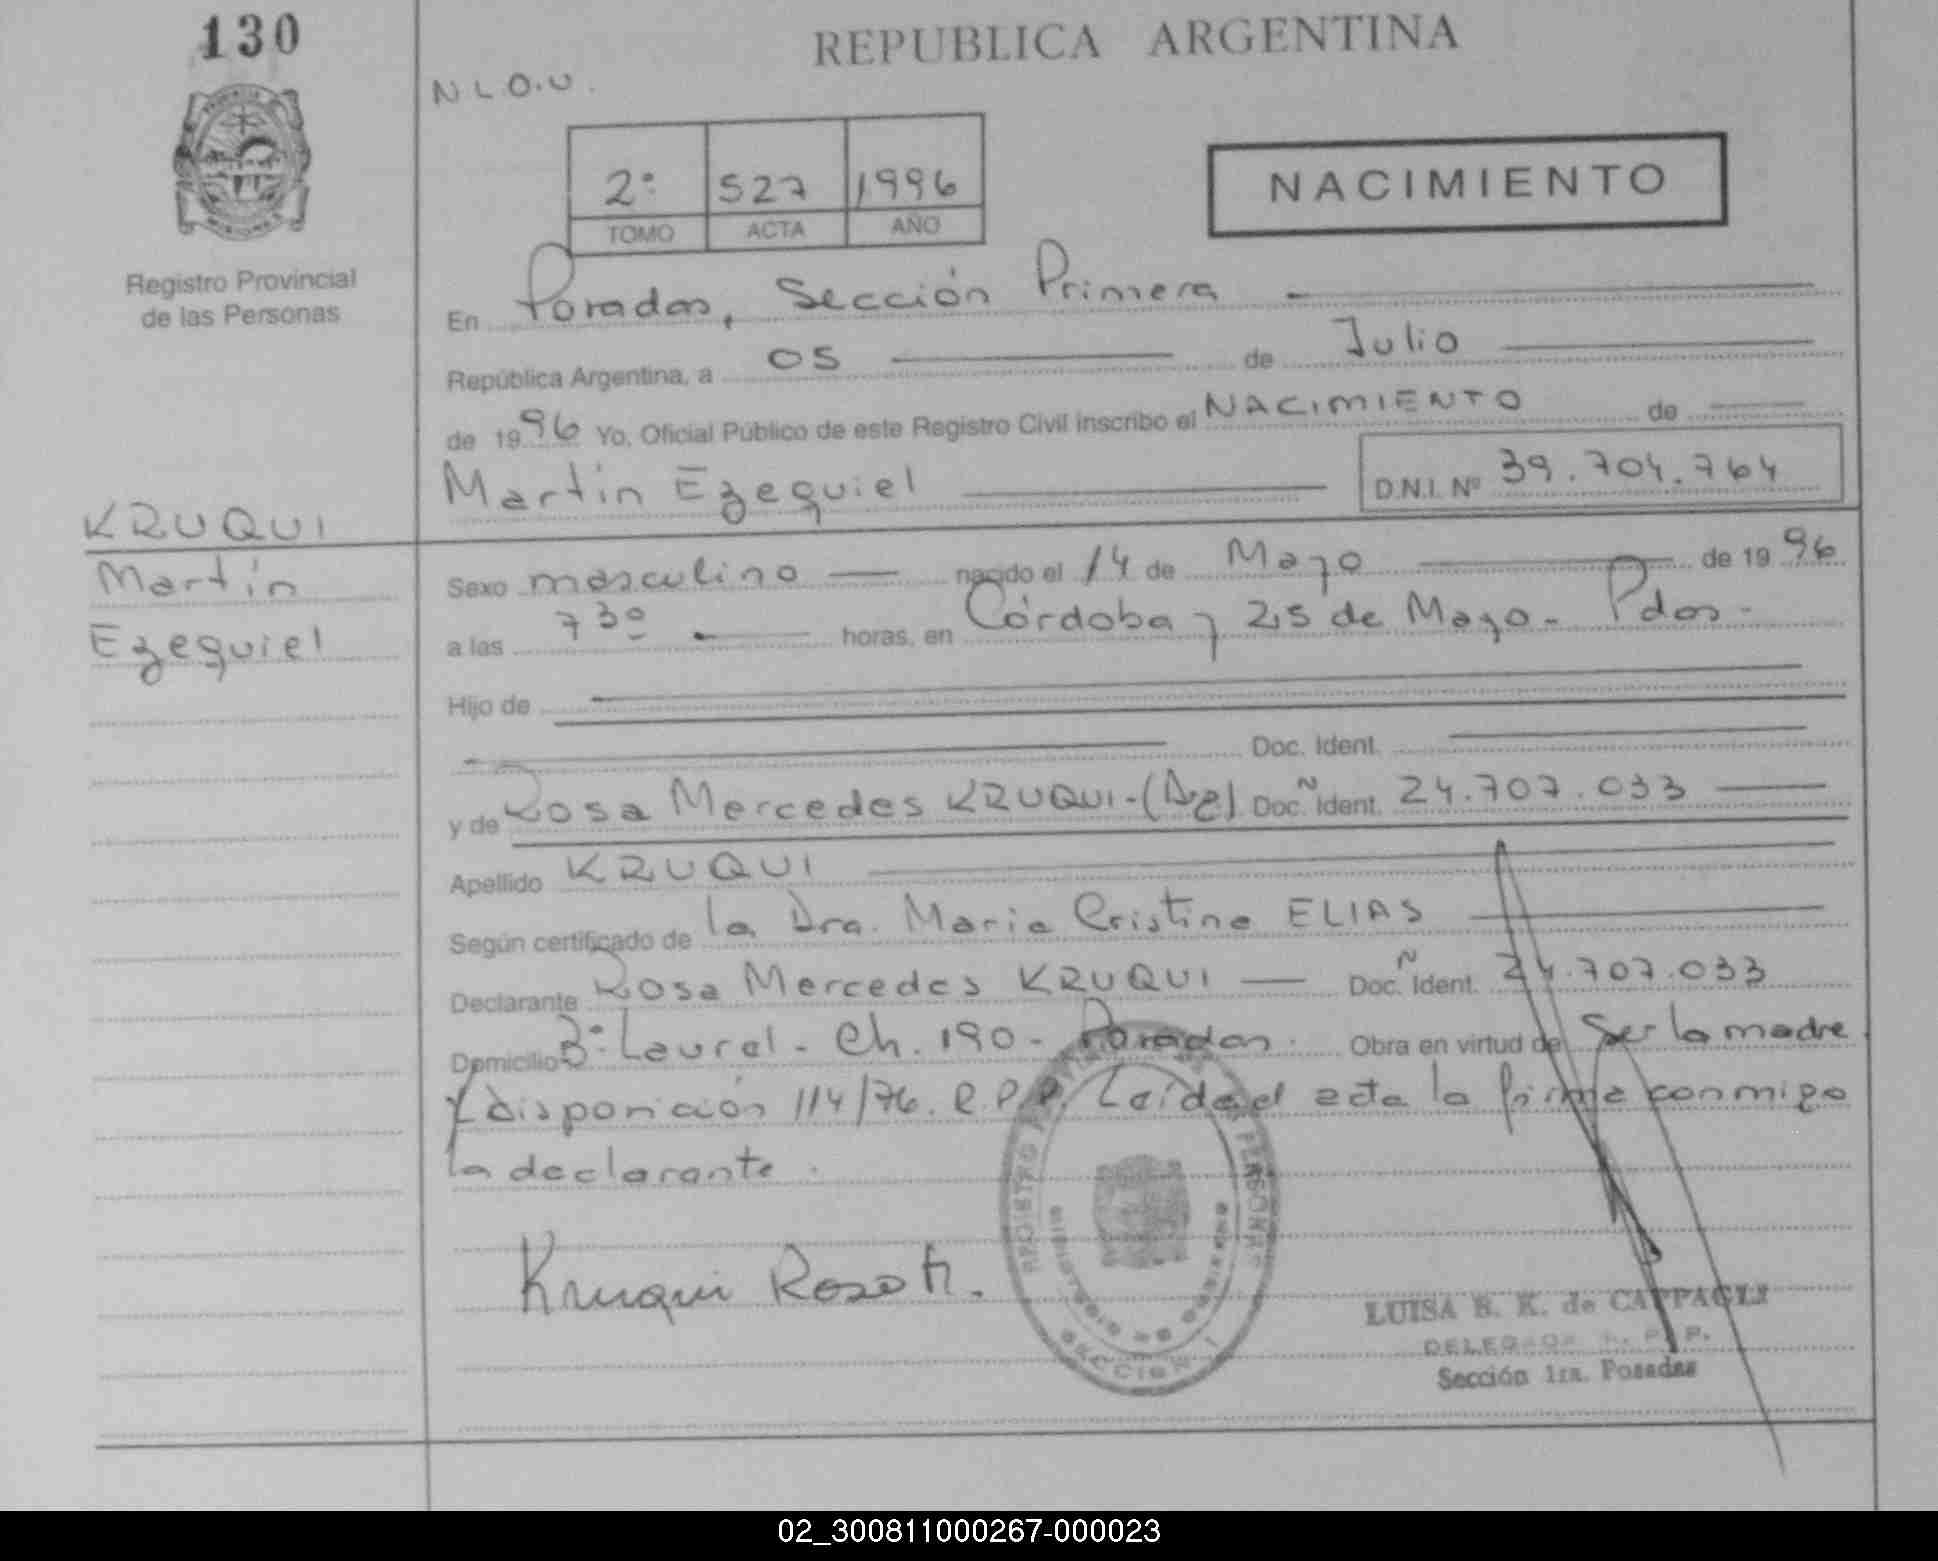 130
REPUBLICA ARGENTINA
N L.O.U.
2º 527 1996
TOMO ACTA AÑO
NACIMIENTO
Registro Provincial
de las Personas
En Posadas, Sección Primera
República Argentina, a 05 de Julio
de 1996 Yo, Oficial Público de este Registro Civil inscribo el NACIMIENTO de
Martín Ezequiel D.N.I. Nº 39.704.764
KRUQUI
Martín
Ezequiel
Sexo masculino nacido el 14 de Mayo de 1996
a las 7 30 horas, en Córdoba y 25 de Mayo - Pdas.
Hijo de
Doc. Ident.
y de Rosa Mercedes KRUQUI - Doc. Ident. 24.707.033
Apellido KRUQUI
Según certificado de la Dra. María Cristina ELIAS
Declarante Rosa Mercedes KRUQUI Doc. Ident. 24.707.033
Domicilio Bº Laurel - Ch. 190 - Posadas. Obra en virtud de Ser la madre
y disposición 114/76. R.P.P. Leída el acta la firma conmigo
la declarante.
Kruqui Rosa M.
LUISA B. K. de CAPPAGLI
DELEGADA R. P. P.
Sección 1ra. Posadas
SECCION 1
02_300811000267-000023